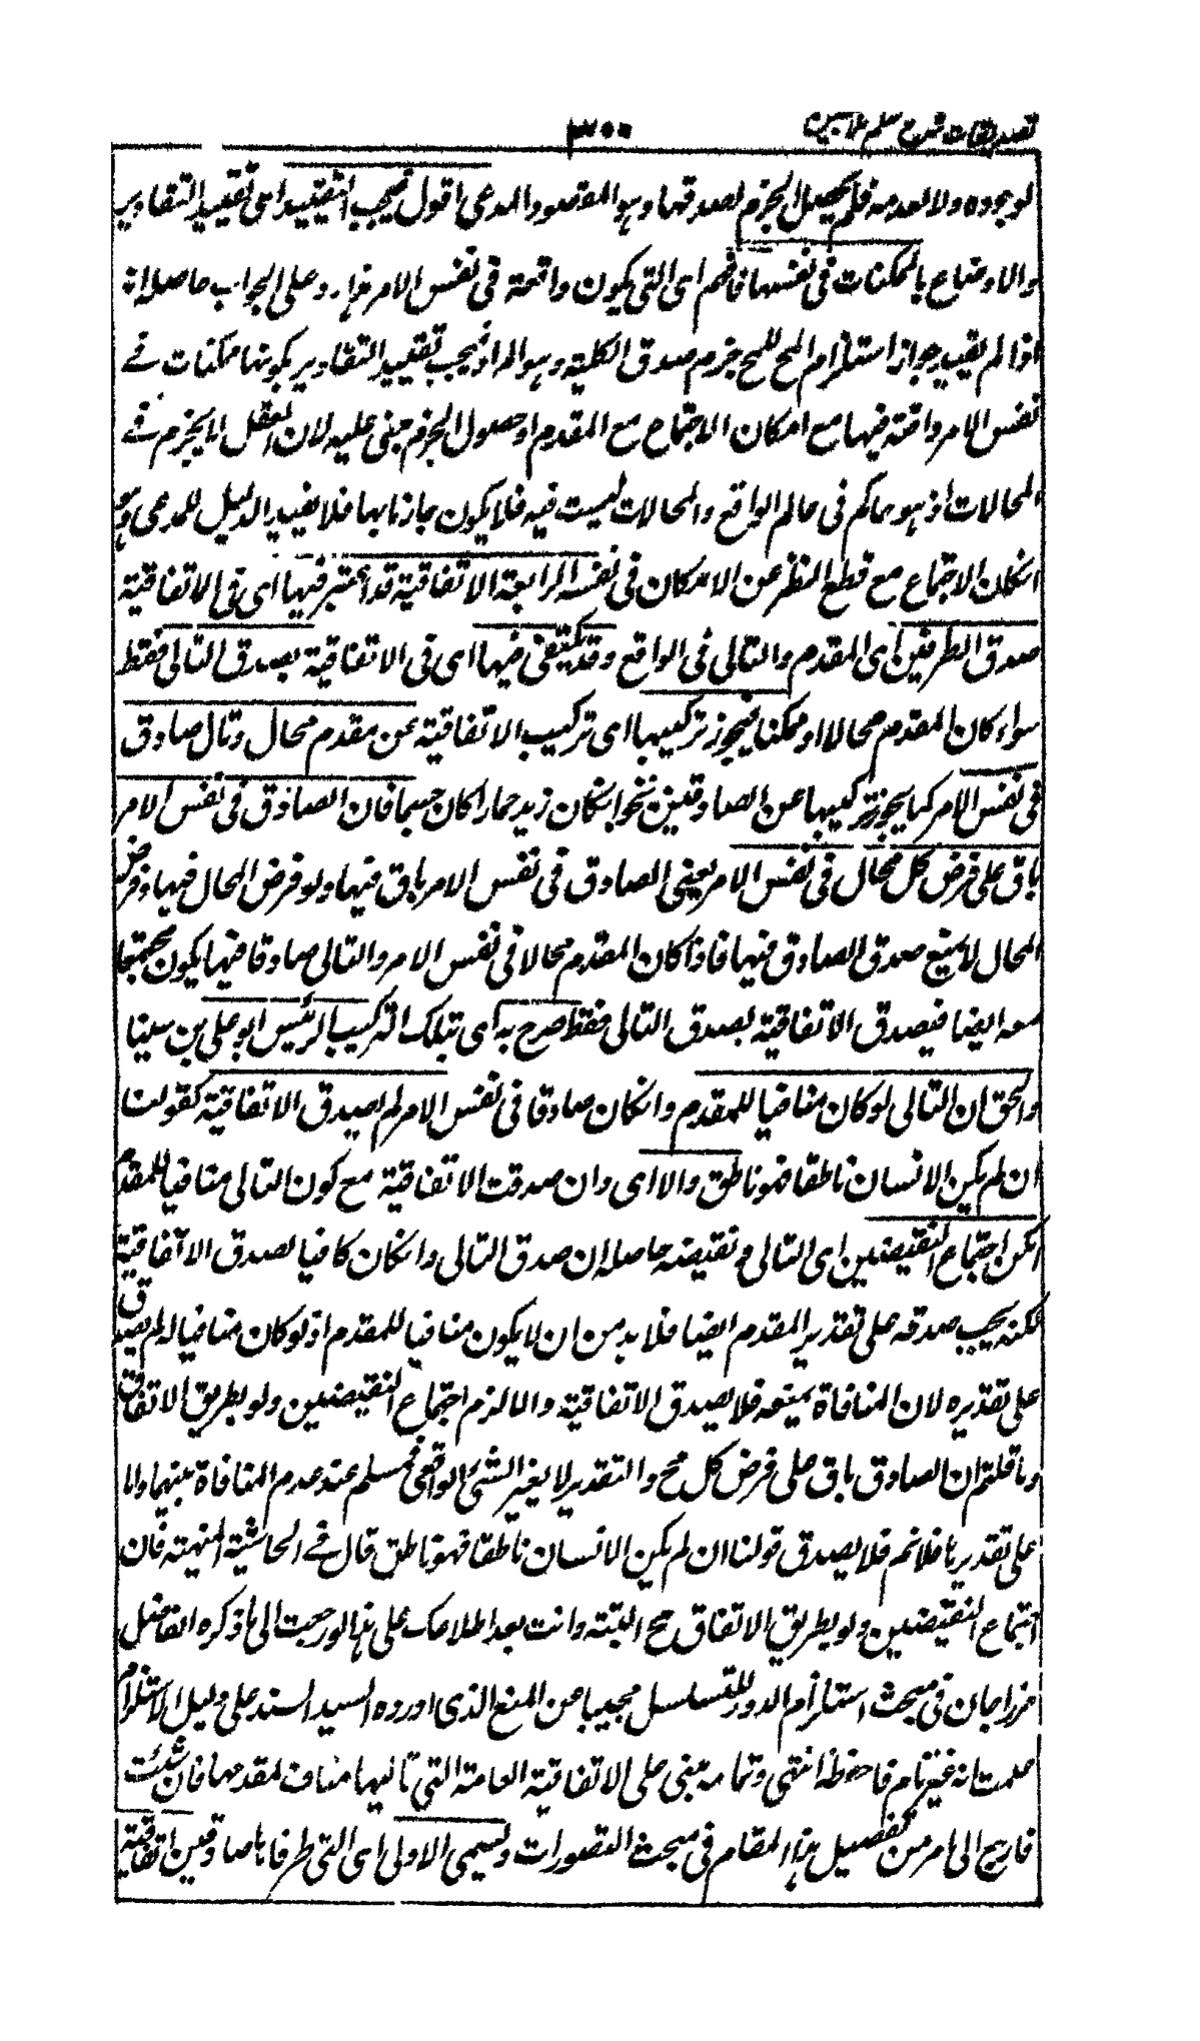 تصديقات شرح سلم ملا مبين
٣٠٠
لوجوده ولا لعدمه فلم يحصل الجزم لصدقها وهو المقصود والمدعى اقول فيجب التقييد اى تقييد التقادير
والاوضاع بالممكنات فى نفسها فافهم اى التى يكون واقعة فى نفس الامر هذا رد على الجواب حاصله انه
اذا لم يفيد جواز استلزام المح للمح جزم صدق الكلية وهو المراد فيجب تقييد التقادير بكونها ممكنات فے
نفس الامر واقعة فيها مع امكان الاجتماع مع المقدم اذ حصول الجزم مبنى عليه لان العقل لا يجزم فے
المحالات اذ هو حاكم فى عالم الواقع والمحالات ليست فيه فلا يكون جازما بها فلا يفيد الدليل للمدعى وهو
امكان الاجتماع مع قطع النظر عن الامكان فى نفسه الرابعة الاتفاقية قد اعتبر فيها اى فى الاتفاقية
صدق الطرفين اى المقدم والتالى فى الواقع وقد يكتفى فيها اى فى الاتفاقية بصدق التالى فقط
سواء كان المقدم محالا او ممكنا فيجوز تركيبها اى تركيب الاتفاقية عن مقدم محال وتال صادق
فى نفس الامر كما يجوز تركيبها عن الصادقين نحو ان كان زيد حمارا كان جسما فان الصادق فى نفس الامر
باق على فرض كل محال فى نفس الامر يعنى الصادق فى نفس الامر باق فيها ولو فرض المحال فيها وفرض
المحال لا يمنع صدق الصادق فيها فاذا كان المقدم محالا فى نفس الامر والتالى صادقا فيها يكون مجتمعا
معه ايضا فيصدق الاتفاقية بصدق التالى فقط صرح به اى بتلك التركيب الرئيس ابو على بن سينا
والحق ان التالى لو كان منافيا للمقدم وان كان صادقا فى نفس الامر لم يصدق الاتفاقية كقولنا
ان لم يكن الانسان ناطقا فهو ناطق والا اى وان صدقت الاتفاقية مع كون التالى منافيا للمقدم
امكن اجتماع النقيضين اى التالى ونقيضه حاصله ان صدق التالى وان كان كافيا لصدق الاتفاقية
لكنه يجب صدقه على تقدير المقدم ايضا فلا بد من ان لا يكون منافيا للمقدم اذ لو كان منافيا له لم يصدق
على تقديره لان المنافاة يمنعه فلا يصدق الاتفاقية والا لزم اجتماع النقيضين ولو بطريق الاتفاق
وما قلتم ان الصادق باق على فرض كل مح والتقدير لا يغير الشئ الواقعى فمسلم عند عدم المنافاة بينهما واما
على تقديرها فلا نم فلا يصدق قولنا ان لم يكن الانسان ناطقا فهو ناطق قال فے الحاشية المنهية فان
اجتماع النقيضين ولو بطريق الاتفاق مح البتة وانت بعد اطلاعك على هذا لو رجعت الى ما ذكره الفاضل
مرزا جان فى مبحث استلزام الدور للتسلسل مجيبا عن المنع الذى اورده السيد السند على دليل الاستلزام
علمت انه غير تام فاحفظه انتهى وتمامه مبنى على الاتفاقية العامة التى تاليها مناف لمقدمها فان شئت
فارجع الى امر من تفصيل هذا المقام فى مبحث التصورات وتسمى الاولى اى التى طرفاها صادقين اتفاقية